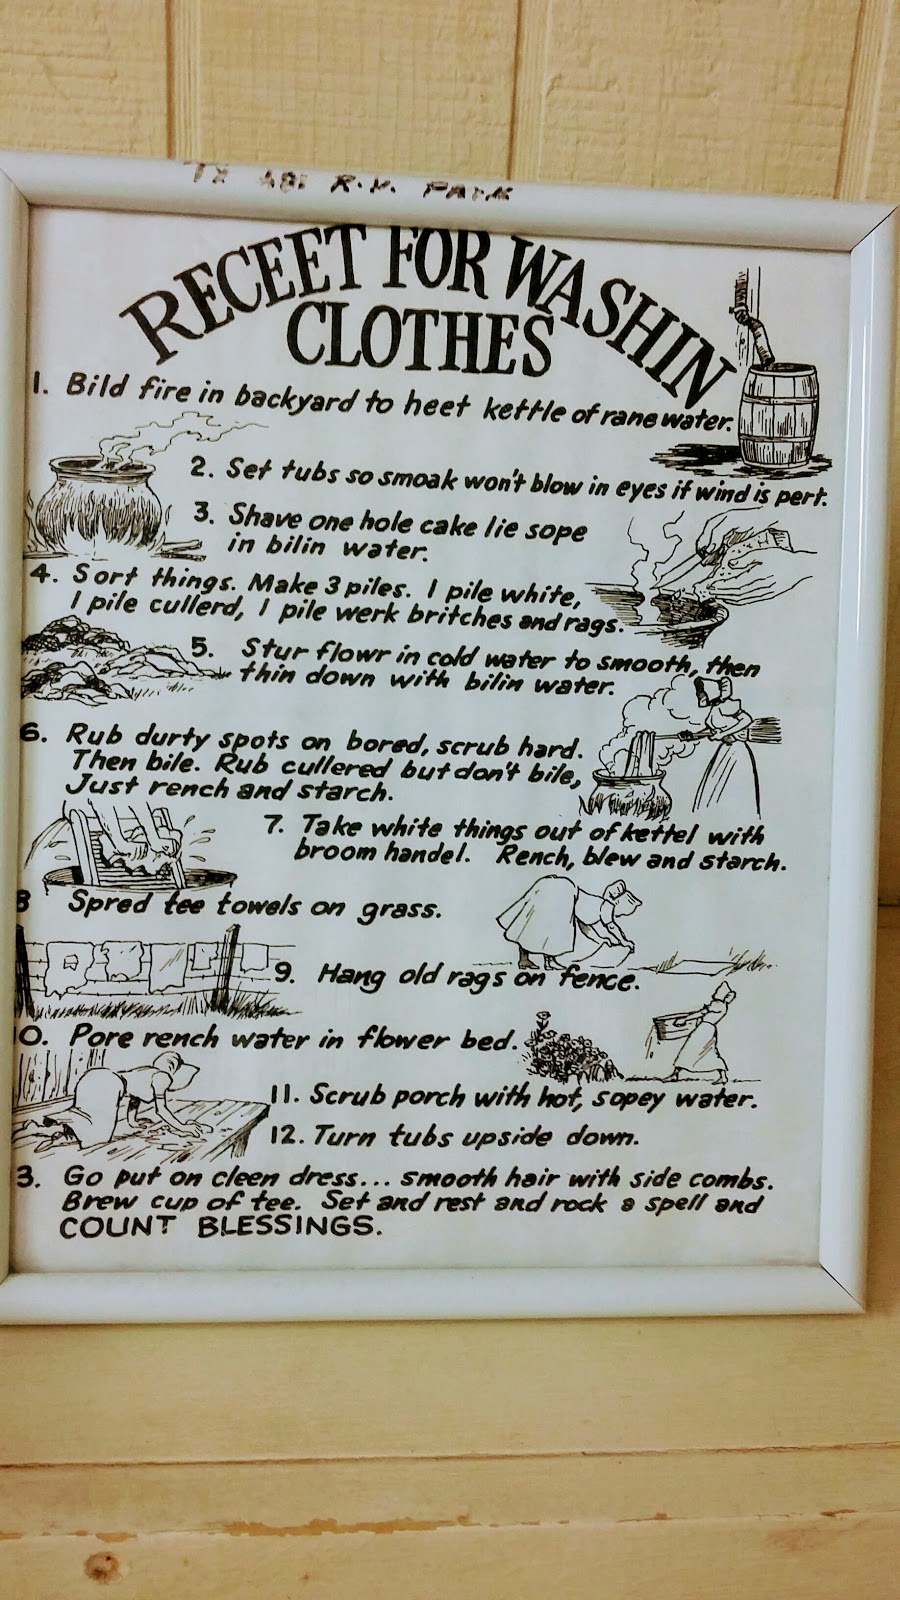 TX 401 R.V. PARK
RECEET FOR WASHIN
CLOTHES
1. Bild fire in backyard to heet kettle of rane water.
2. Set tubs so smoak won't blow in eyes if wind is pert.
3. Shave one hole cake lie sope
in bilin water.
4. Sort things. Make 3 piles. 1 pile white,
1 pile cullerd, 1 pile werk britches and rags.
5. Stur flowr in cold water to smooth, then
thin down with bilin water.
6. Rub durty spots on bored, scrub hard.
Then bile. Rub cullered but don't bile,
Just rench and starch.
7. Take white things out of kettel with
broom handel. Rench, blew and starch.
8 Spred tee towels on grass.
9. Hang old rags on fence.
10. Pore rench water in flower bed.
11. Scrub porch with hot, sopey water.
12. Turn tubs upside down.
3. Go put on cleen dress... smooth hair with side combs.
Brew cup of tee. Set and rest and rock a spell and
COUNT BLESSINGS.